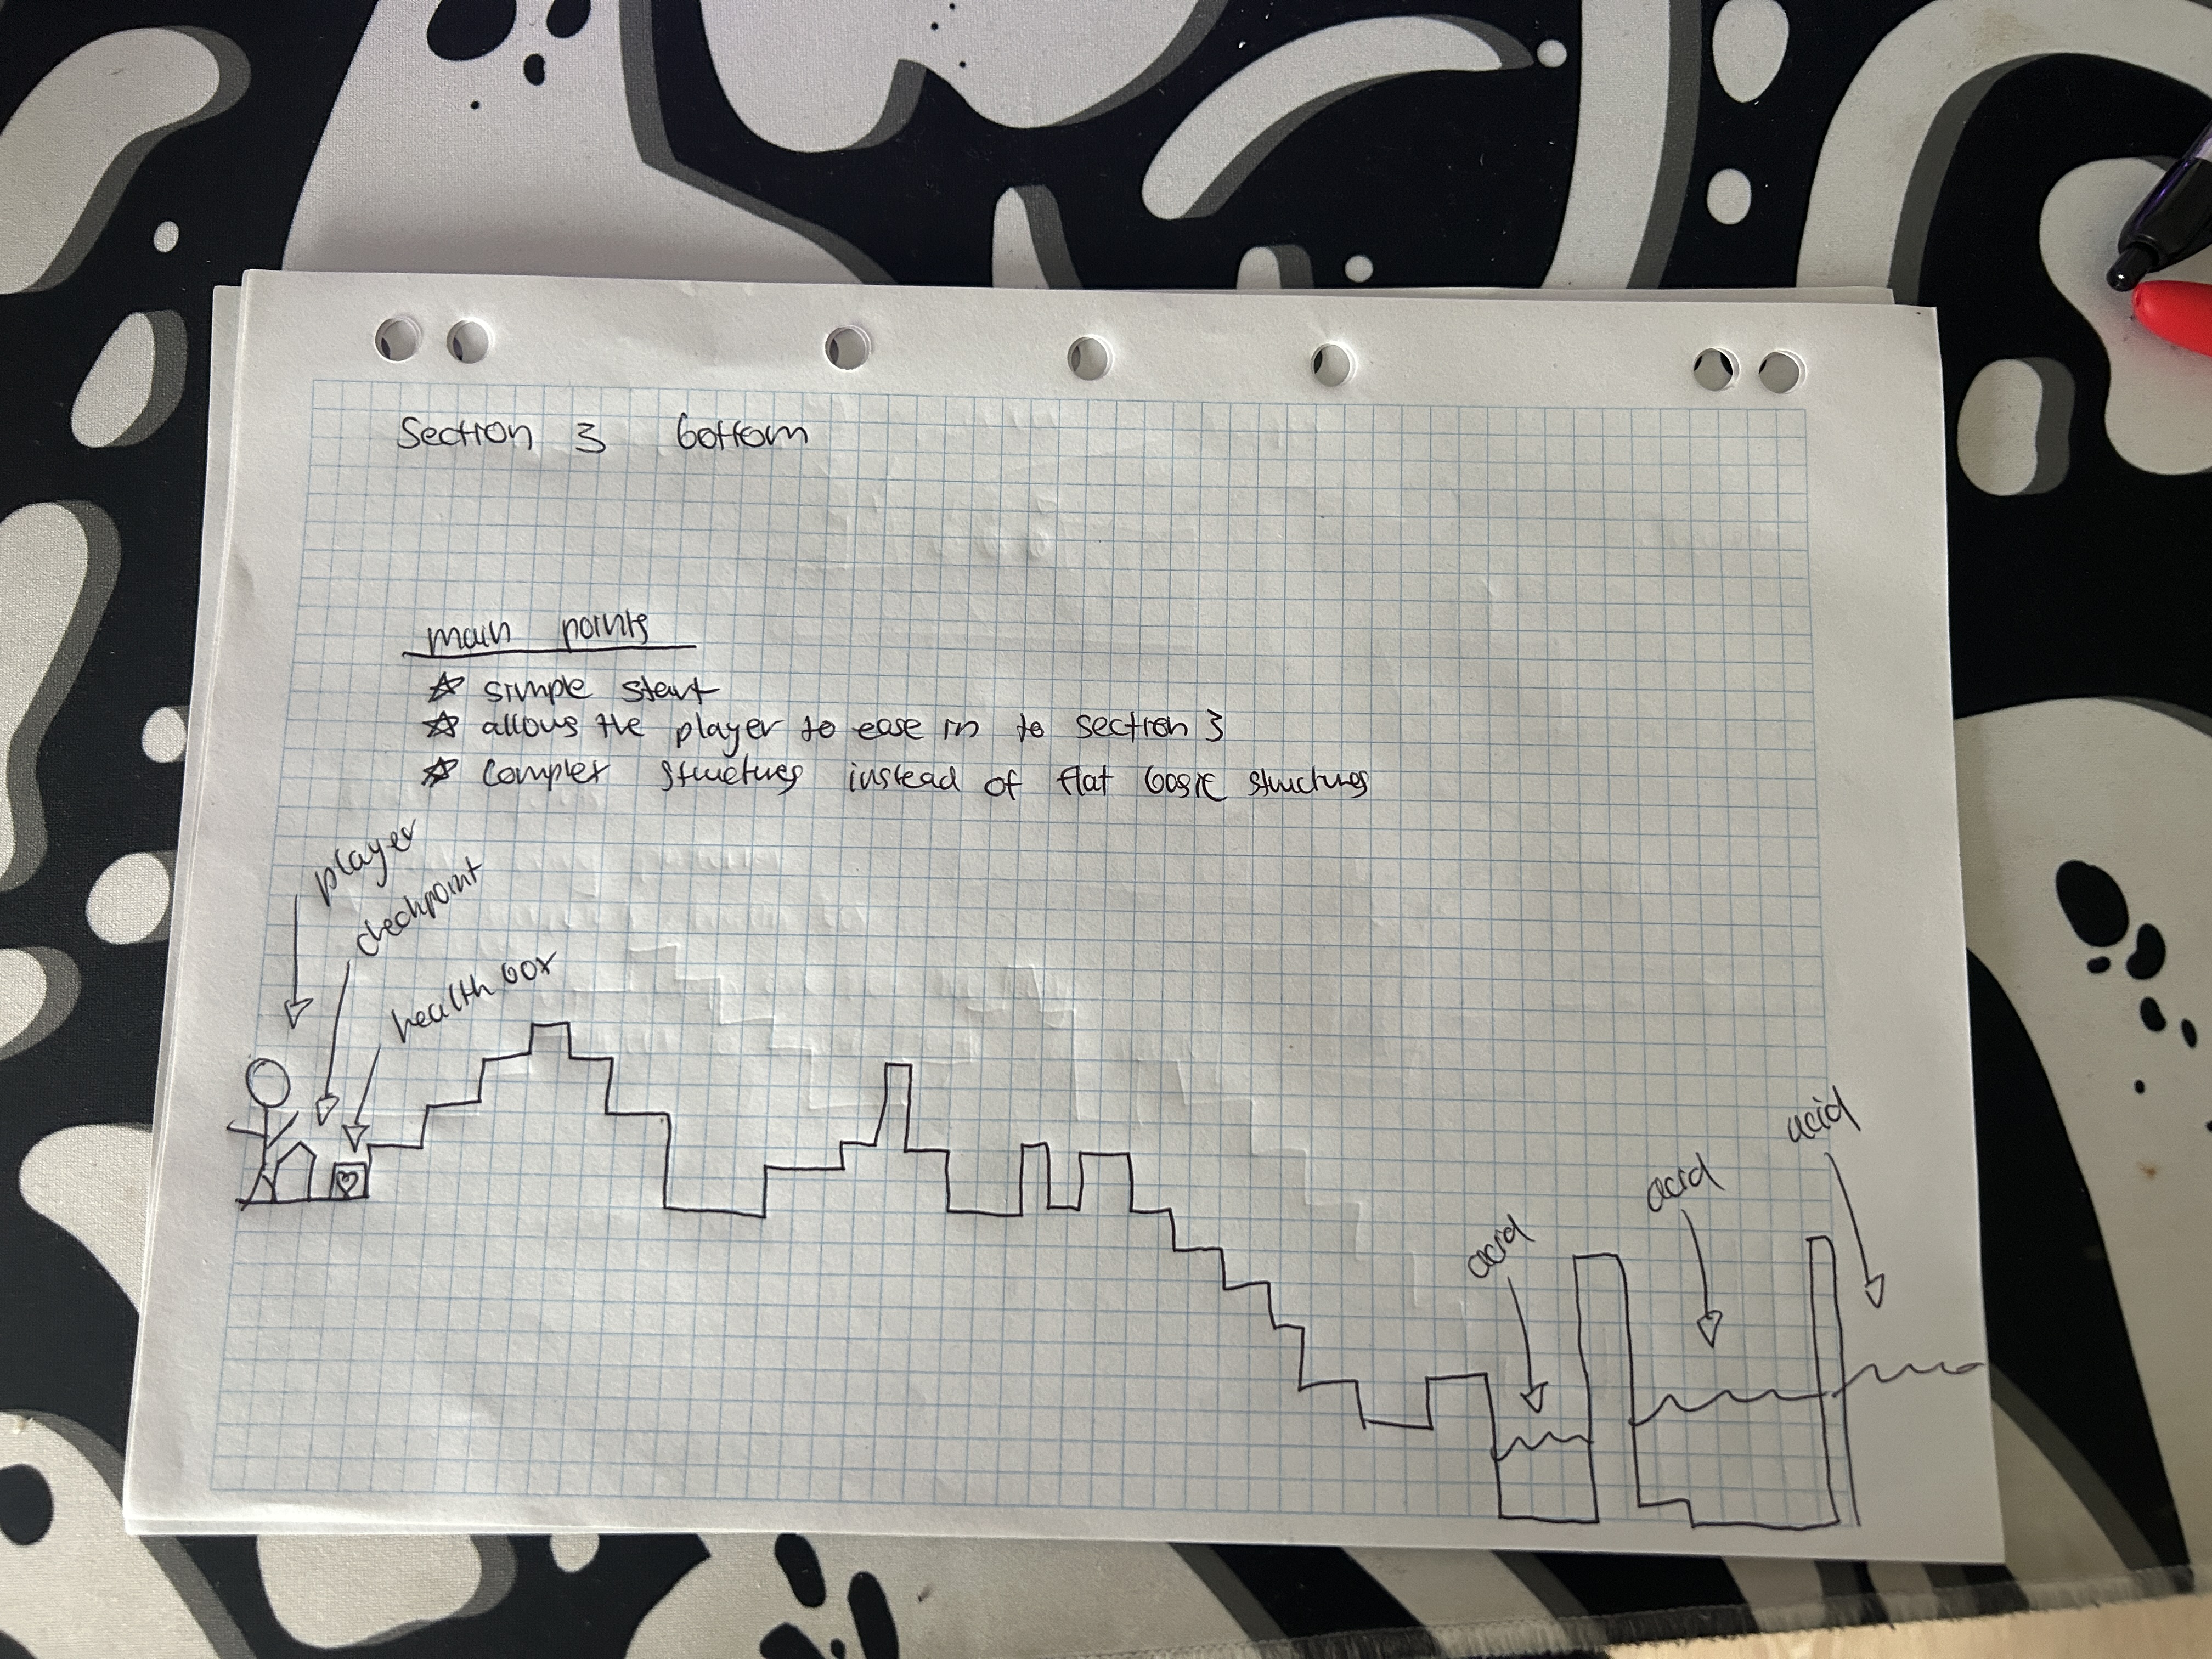 Section 3 bottom
main points
☆ simple start
☆ allows the player to ease in to section 3
☆ complex structures instead of flat basic structures
player
checkpoint
health box
acid
acid
acid